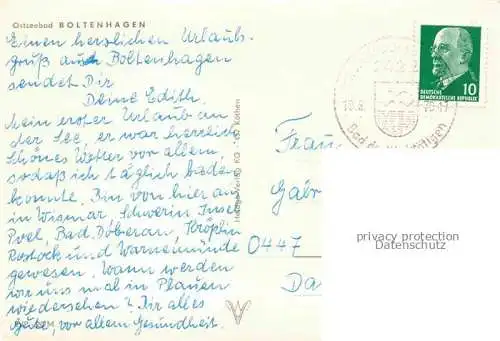 Ostseebad BOLTENHAGEN
Einen herzlichen Urlaubs-
gruß aus Boltenhagen
sendet Dir
Deine Edith.
Mein erster Urlaub an
der See, er war herrlich
schönes Wetter vor allem,
sodaß ich täglich baden
konnte. Bin von hier aus
in Wismar, Schwerin Insel
Poel, Bad Doberan, Kröplin
Rostock und Warnemünde
gewesen. Wann werden
wir uns mal in Plauen
wiedersehen? Dir alles
Gute, vor allem Gesundheit.
Köthen
DEUTSCHE
DEMOKRATISCHE REPUBLIK
10
Bad der
Frau
Gabr
0447
Da
privacy protection
Datenschutz